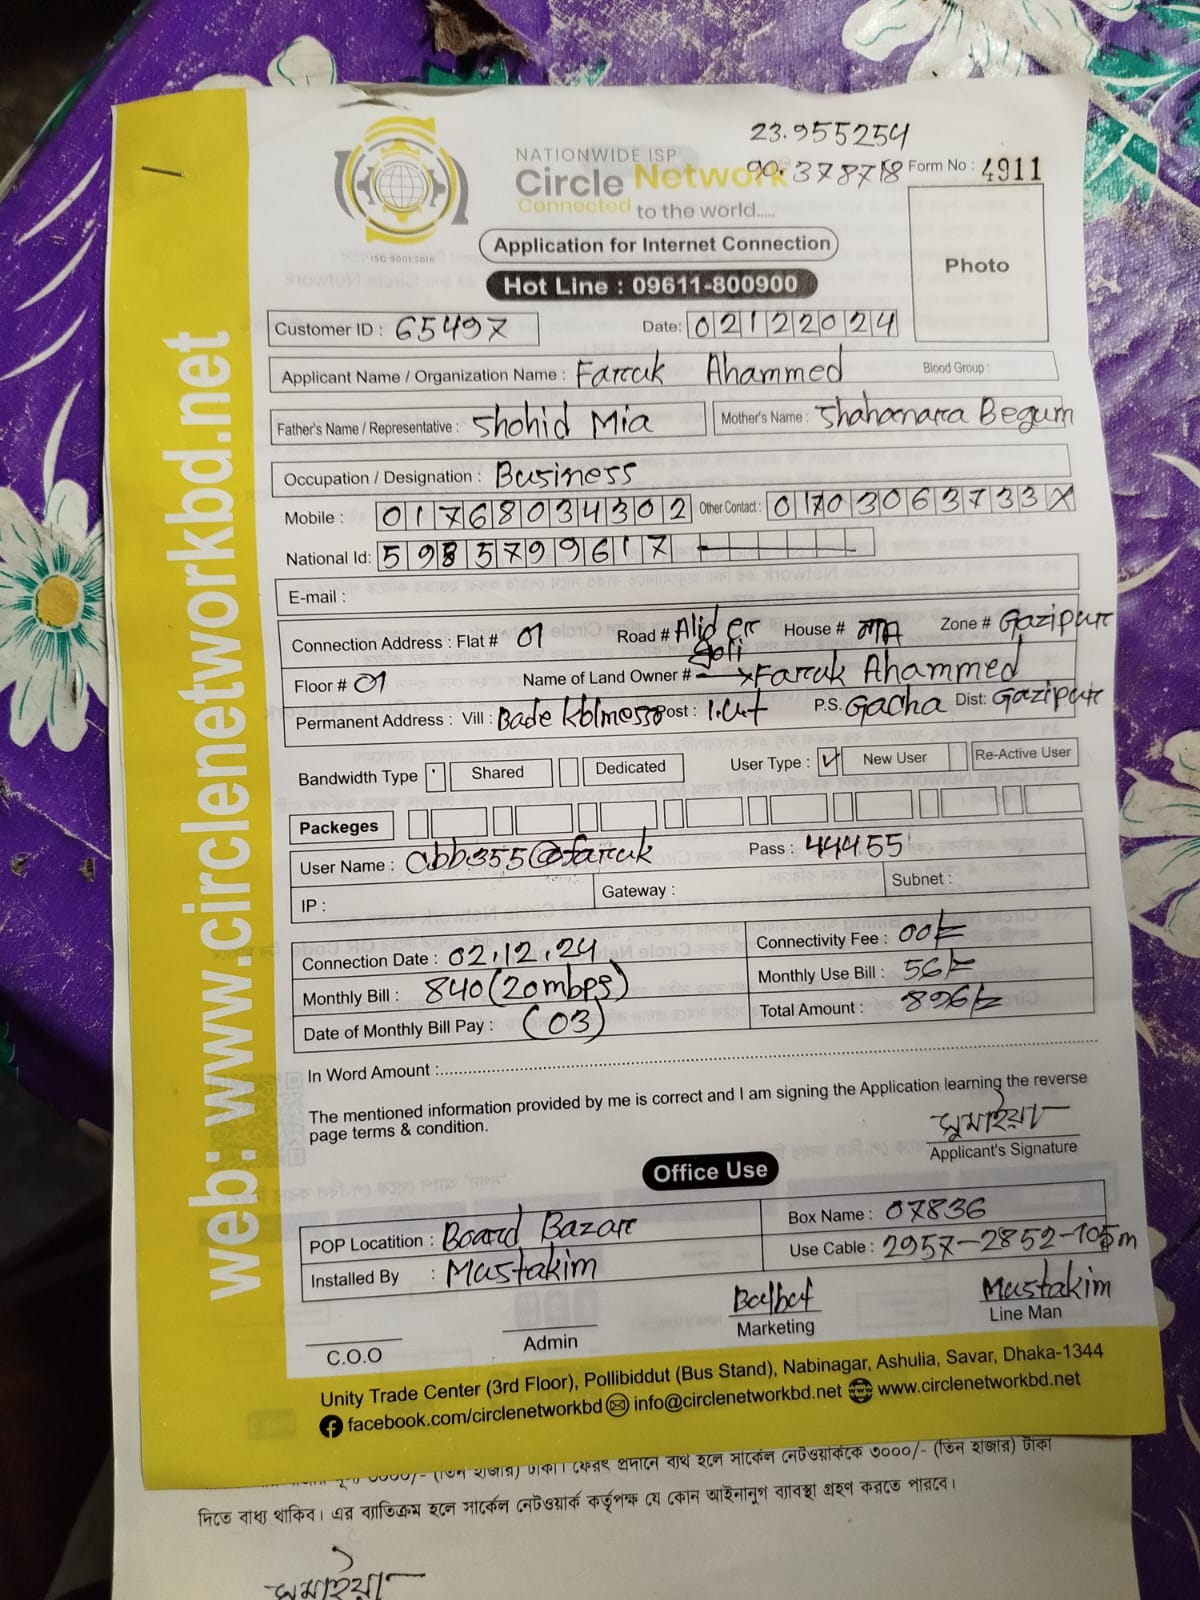 23.955254
90.378718
NATIONWIDE ISP
Circle Network
Connected to the world.....
ISO 9001:2015
Form No : 4911
Photo
Application for Internet Connection
Hot Line : 09611-800900
Customer ID : 65497
Date: 02122024
Applicant Name / Organization Name : Faruk Ahammed Blood Group :
Father's Name / Representative : Shohid Mia Mother's Name : Shahanara Begum
Occupation / Designation : Business
Mobile : 01768034302 Other Contact : 01703063733X
National Id: 5985799617
E-mail :
Connection Address : Flat # 01 Road # Alider Goli House # Zone # Gazipur
Floor # 01 Name of Land Owner # Faruk Ahammed
Permanent Address : Vill : Bade Kolmessor Post : P.S. Gacha Dist: Gazipur
Bandwidth Type Shared Dedicated User Type : ✓ New User Re-Active User
Packeges
User Name : cbb355@faruk Pass : 44455
IP : Gateway : Subnet :
Connection Date : 02.12.24 Connectivity Fee : 00/=
Monthly Bill : 840 (20mbps) Monthly Use Bill : 56/=
Date of Monthly Bill Pay : (03) Total Amount : 896/=
In Word Amount :
The mentioned information provided by me is correct and I am signing the Application learning the reverse
page terms & condition.
সুমাইয়া
Applicant's Signature
Office Use
POP Locatition : Board Bazar Box Name : 07836
Installed By : Mustakim Use Cable : 2957-2852-105m
C.O.O
Admin
Marketing
Mustakim
Line Man
Unity Trade Center (3rd Floor), Pollibiddut (Bus Stand), Nabinagar, Ashulia, Savar, Dhaka-1344
facebook.com/circlenetworkbd info@circlenetworkbd.net www.circlenetworkbd.net
web: www.circlenetworkbd.net
(তিন হাজার) টাকা। ফেরৎ প্রদানে ব্যর্থ হলে সার্কেল নেটওয়ার্ককে ৩০০০/- (তিন হাজার) টাকা
দিতে বাধ্য থাকিব। এর ব্যাতিক্রম হলে সার্কেল নেটওয়ার্ক কর্তৃপক্ষ যে কোন আইনানুগ ব্যাবস্থা গ্রহণ করতে পারবে।
সুমাইয়া